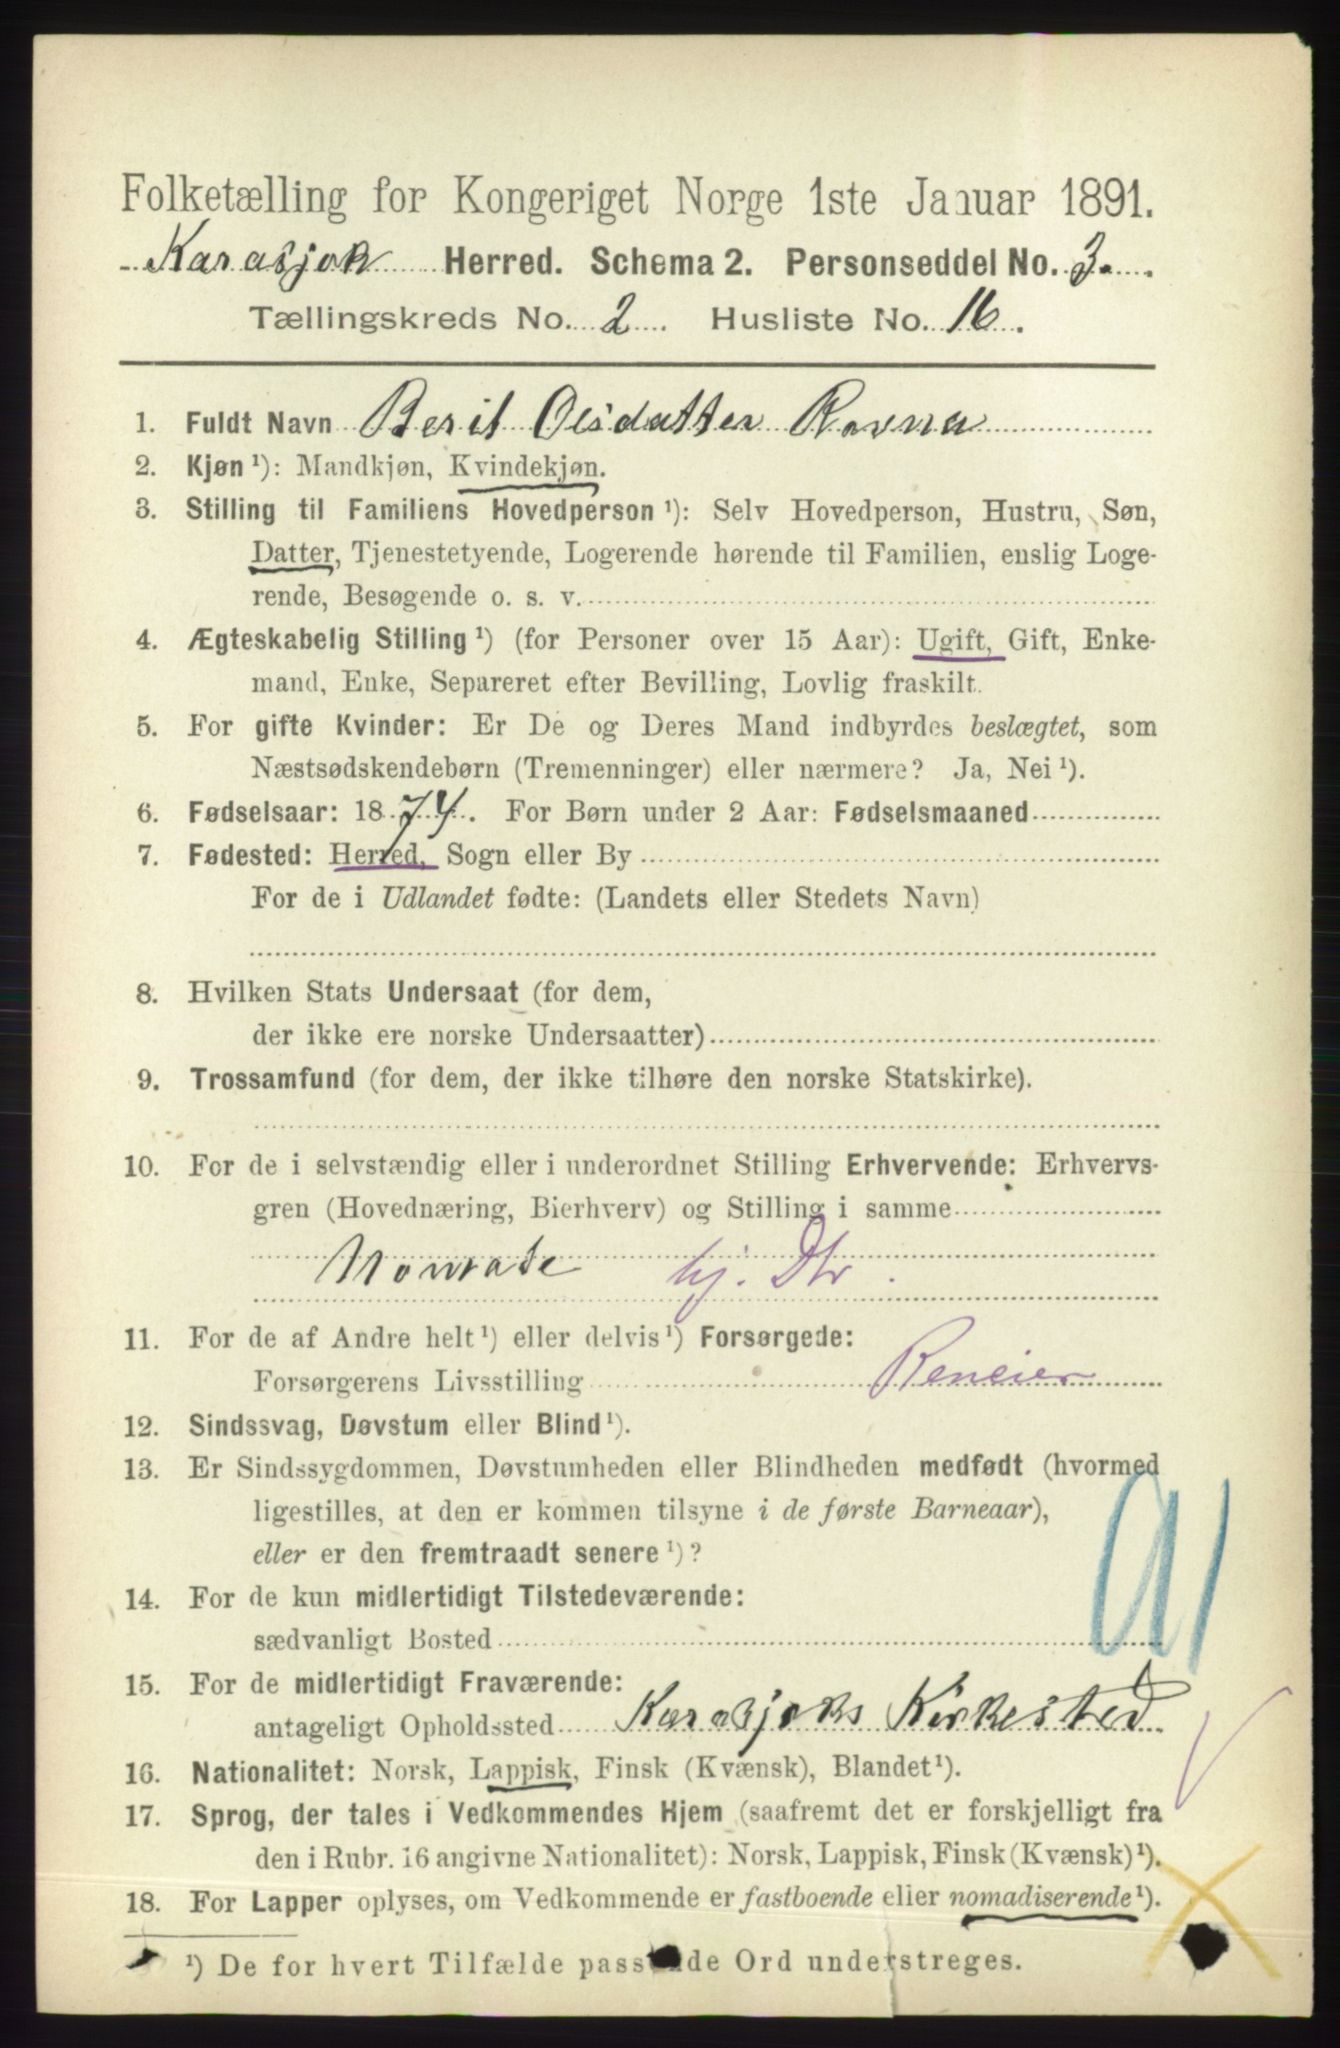 Folketælling for Kongeriget Norge 1ste Januar 1891.
Karasjok Herred. Schema 2. Personseddel No. 3.
Tællingskreds No. 2. Husliste No. 16.
1. Fuldt Navn Berit Olsdatter Ravna
2. Kjøn ¹): Mandkjøn, Kvindekjøn.
3. Stilling til Familiens Hovedperson ¹): Selv Hovedperson, Hustru, Søn,
Datter, Tjenestetyende, Logerende hørende til Familien, enslig Loge-
rende, Besøgende o. s. v.
4. Ægteskabelig Stilling ¹) (for Personer over 15 Aar): Ugift, Gift, Enke-
mand, Enke, Separeret efter Bevilling, Lovlig fraskilt.
5. For gifte Kvinder: Er De og Deres Mand indbyrdes beslægtet, som
Næstsødskendebørn (Tremenninger) eller nærmere? Ja, Nei ¹).
6. Fødselsaar: 1874. For Børn under 2 Aar: Fødselsmaaned
7. Fødested: Herred, Sogn eller By
For de i Udlandet fødte: (Landets eller Stedets Navn)
8. Hvilken Stats Undersaat (for dem,
der ikke ere norske Undersaatter)
9. Trossamfund (for dem, der ikke tilhøre den norske Statskirke).
10. For de i selvstændig eller i underordnet Stilling Erhvervende: Erhvervs-
gren (Hovednæring, Bierhverv) og Stilling i samme
Nomade hj. Dtr.
11. For de af Andre helt ¹) eller delvis ¹) Forsørgede:
Forsørgerens Livsstilling Reneier
12. Sindssvag, Døvstum eller Blind ¹).
13. Er Sindssygdommen, Døvstumheden eller Blindheden medfødt (hvormed
ligestilles, at den er kommen tilsyne i de første Barneaar),
eller er den fremtraadt senere ¹)?
14. For de kun midlertidigt Tilstedeværende:
sædvanligt Bosted
15. For de midlertidigt Fraværende:
antageligt Opholdssted Karasjoks Kirkested
16. Nationalitet: Norsk, Lappisk, Finsk (Kvænsk), Blandet ¹).
17. Sprog, der tales i Vedkommendes Hjem (saafremt det er forskjelligt fra
den i Rubr. 16 angivne Nationalitet): Norsk, Lappisk, Finsk (Kvænsk) ¹).
18. For Lapper oplyses, om Vedkommende er fastboende eller nomadiserende ¹).
¹) De for hvert Tilfælde passende Ord understreges.